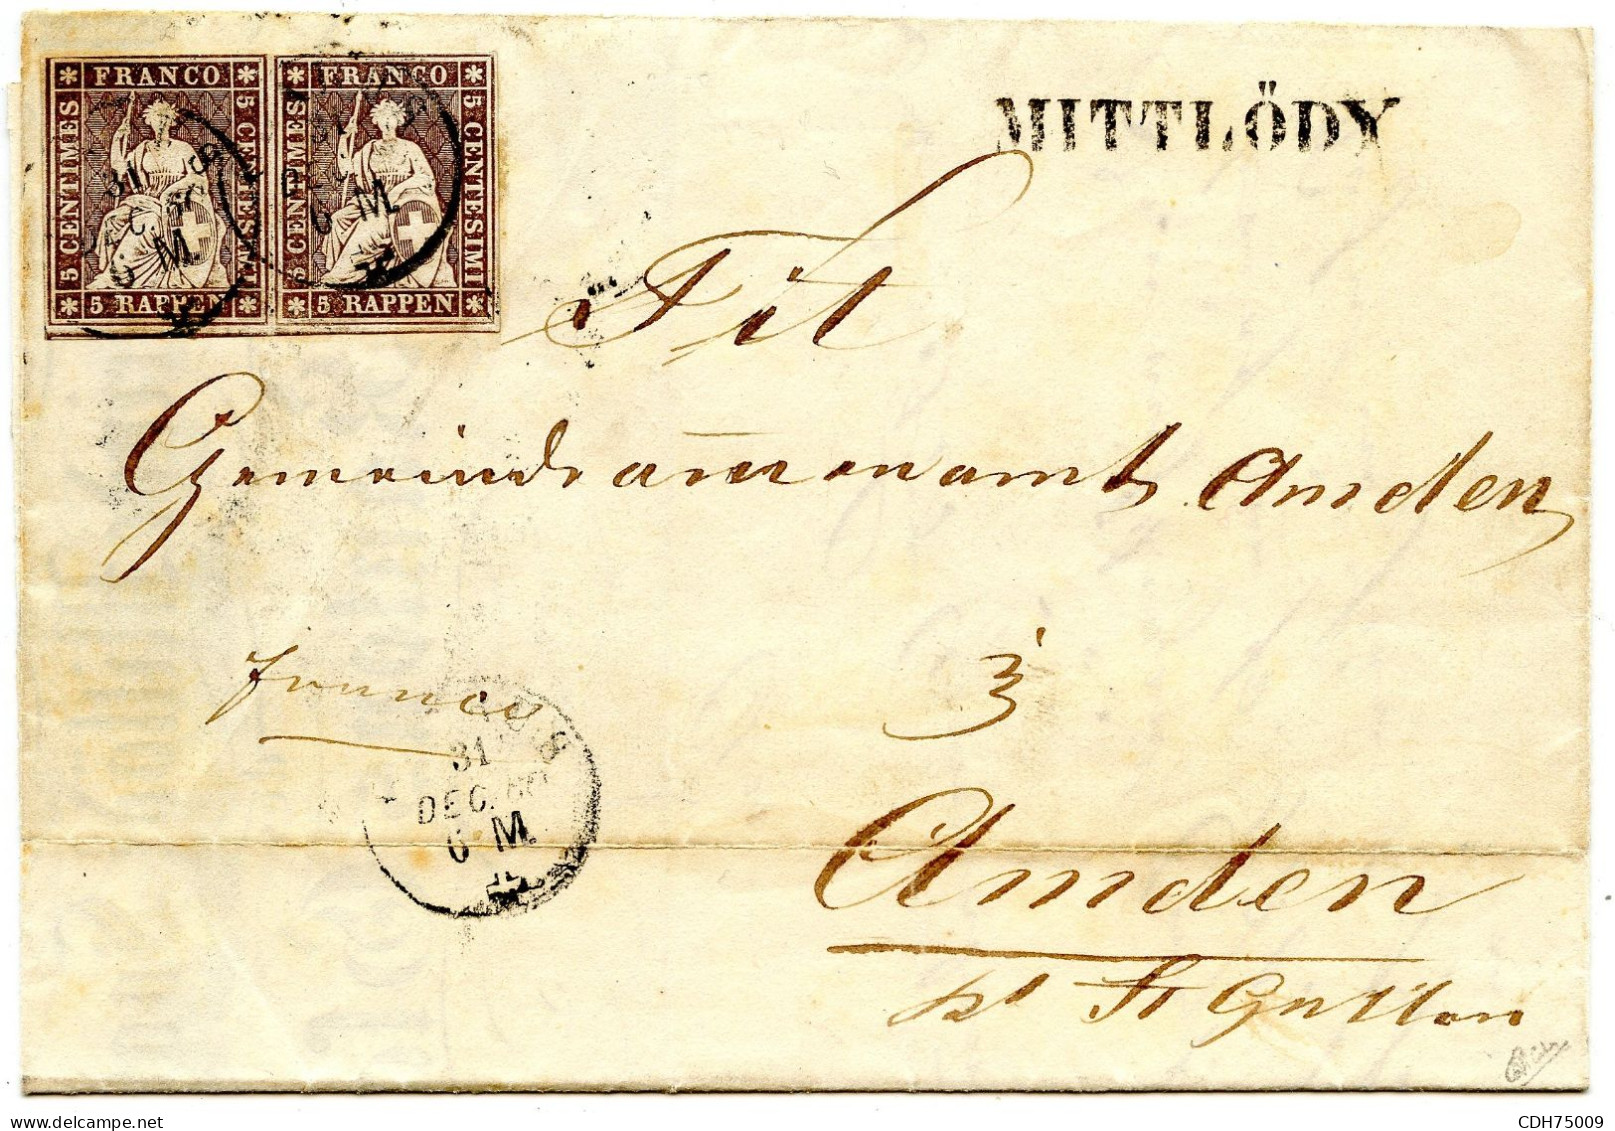 FRANCO FRANCO
5 CENTIMES 5 CENTESIMI 5 CENTIMES 5 CENTESIMI
5 RAPPEN 5 RAPPEN
31 DEC. 6 M
31 DEC 6 M
MITTLÖDY
Tit
Gemeindeam̅enamt Amden
franco
31
DEC.
6 M
Amden
St Gallen
CDH75009